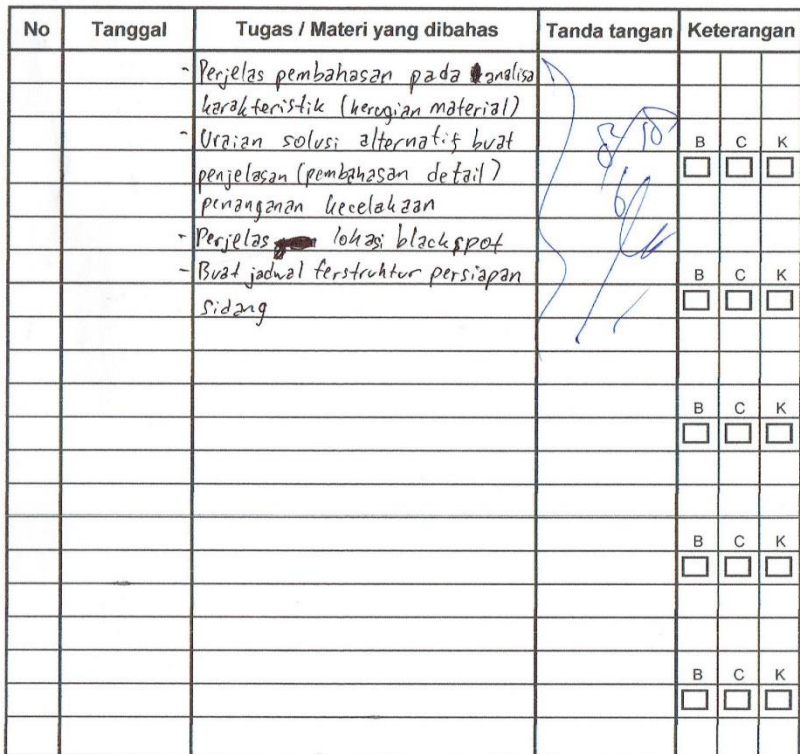 No Tanggal Tugas / Materi yang dibahas Tanda tangan Keterangan
- Perjelas pembahasan pada analisa
karakteristik (kerugian material)
- Uraian solusi alternatif buat
B C K
penjelasan (pembahasan detail)
penanganan kecelakaan
- Perjelas lokasi blackspot
- Buat jadwal terstruktur persiapan
B C K
sidang
B C K
B C K
B C K